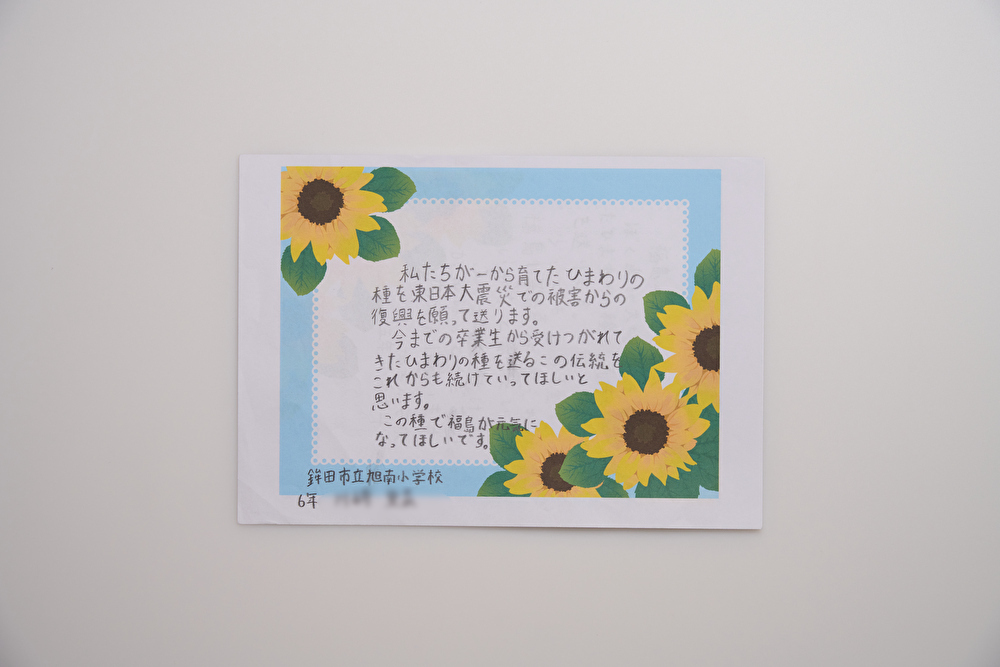 私たちが一から育てたひまわりの
種を東日本大震災での被害からの
復興を願って送ります。
今までの卒業生から受けつがれて
きたひまわりの種を送るこの伝統を
これからも続けていってほしいと
思います。
この種で福島が元気に
なってほしいです。
鉾田市立旭南小学校
6年